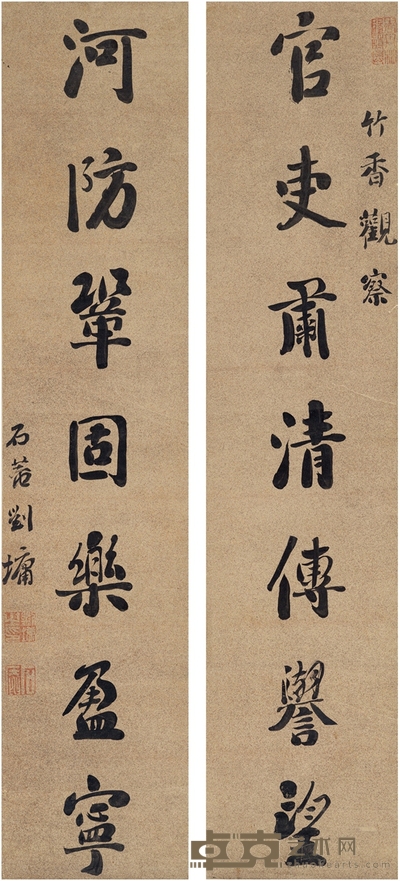 竹香觀察
官吏肅清傳譽望
河防鞏固樂盈寧
石菴劉墉
卓克艺术网